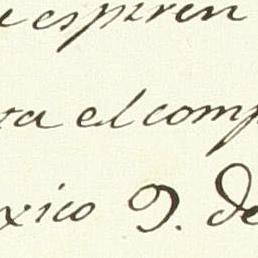 espiren
ra el comp
xico 9. de